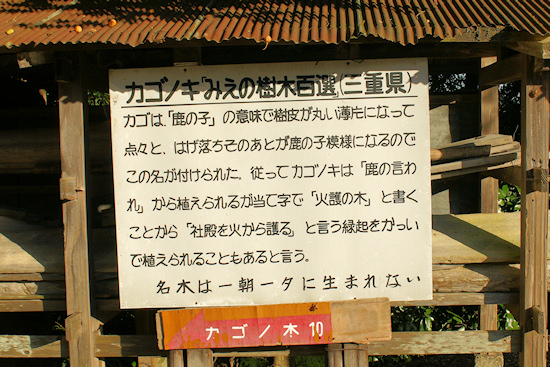 カゴノキ『みえの樹木百選』(三重県)
カゴは、「鹿の子」の意味で樹皮が丸い薄片になって
点々と、はげ落ちそのあとが鹿の子模様になるので
この名が付けられた。従ってカゴノキは「鹿の言わ
れ」から植えられるが当て字で「火護の木」と書く
ことから「社殿を火から護る」と言う縁起をかつい
で植えられることもあると言う。
名木は一朝一夕に生まれない
カゴノ木10